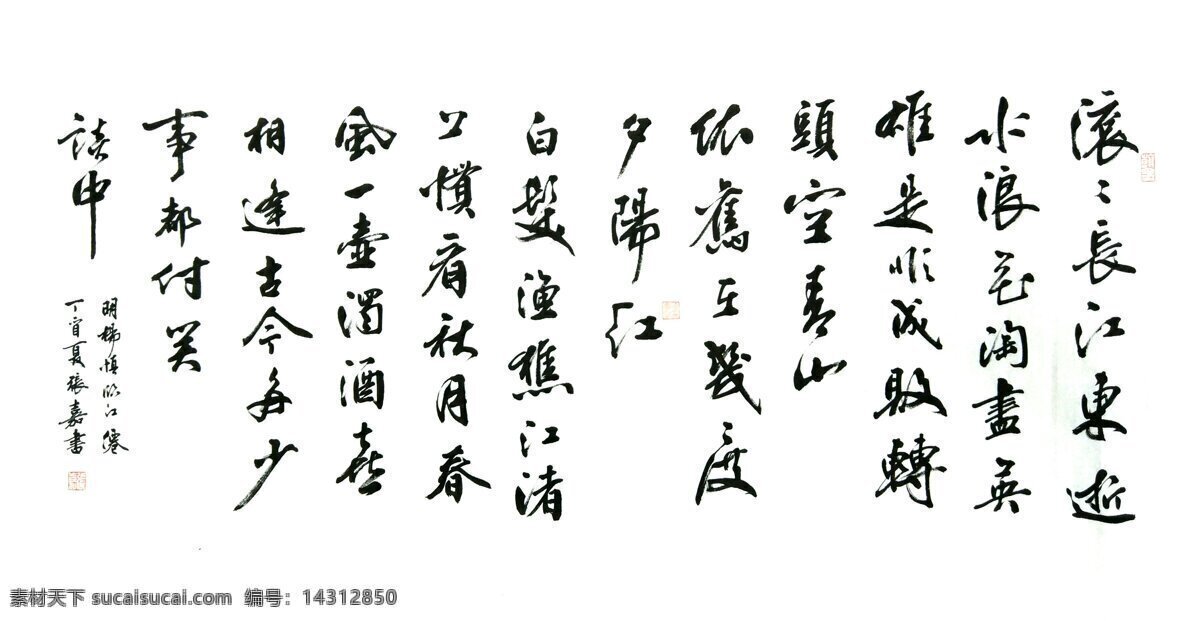 滚〻長江東逝
水浪花淘盡英
雄是非成敗轉
頭空青山
依舊在幾度
夕陽紅
白髮漁樵江渚
上慣看秋月春
風一壺濁酒喜
相逢古今多少
事都付笑
談中
明楊慎臨江僊
丁酉夏張嘉書
素材天下 sucaisucai.com 编号：14312850